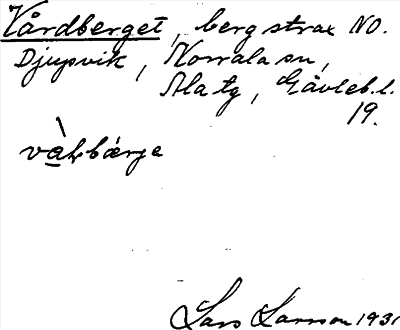 Vårdberget, berg strax NO.
Djupvik, Norrala sn,
Ala tg, Gävleb. l.
19.
Lars Larsson 1931